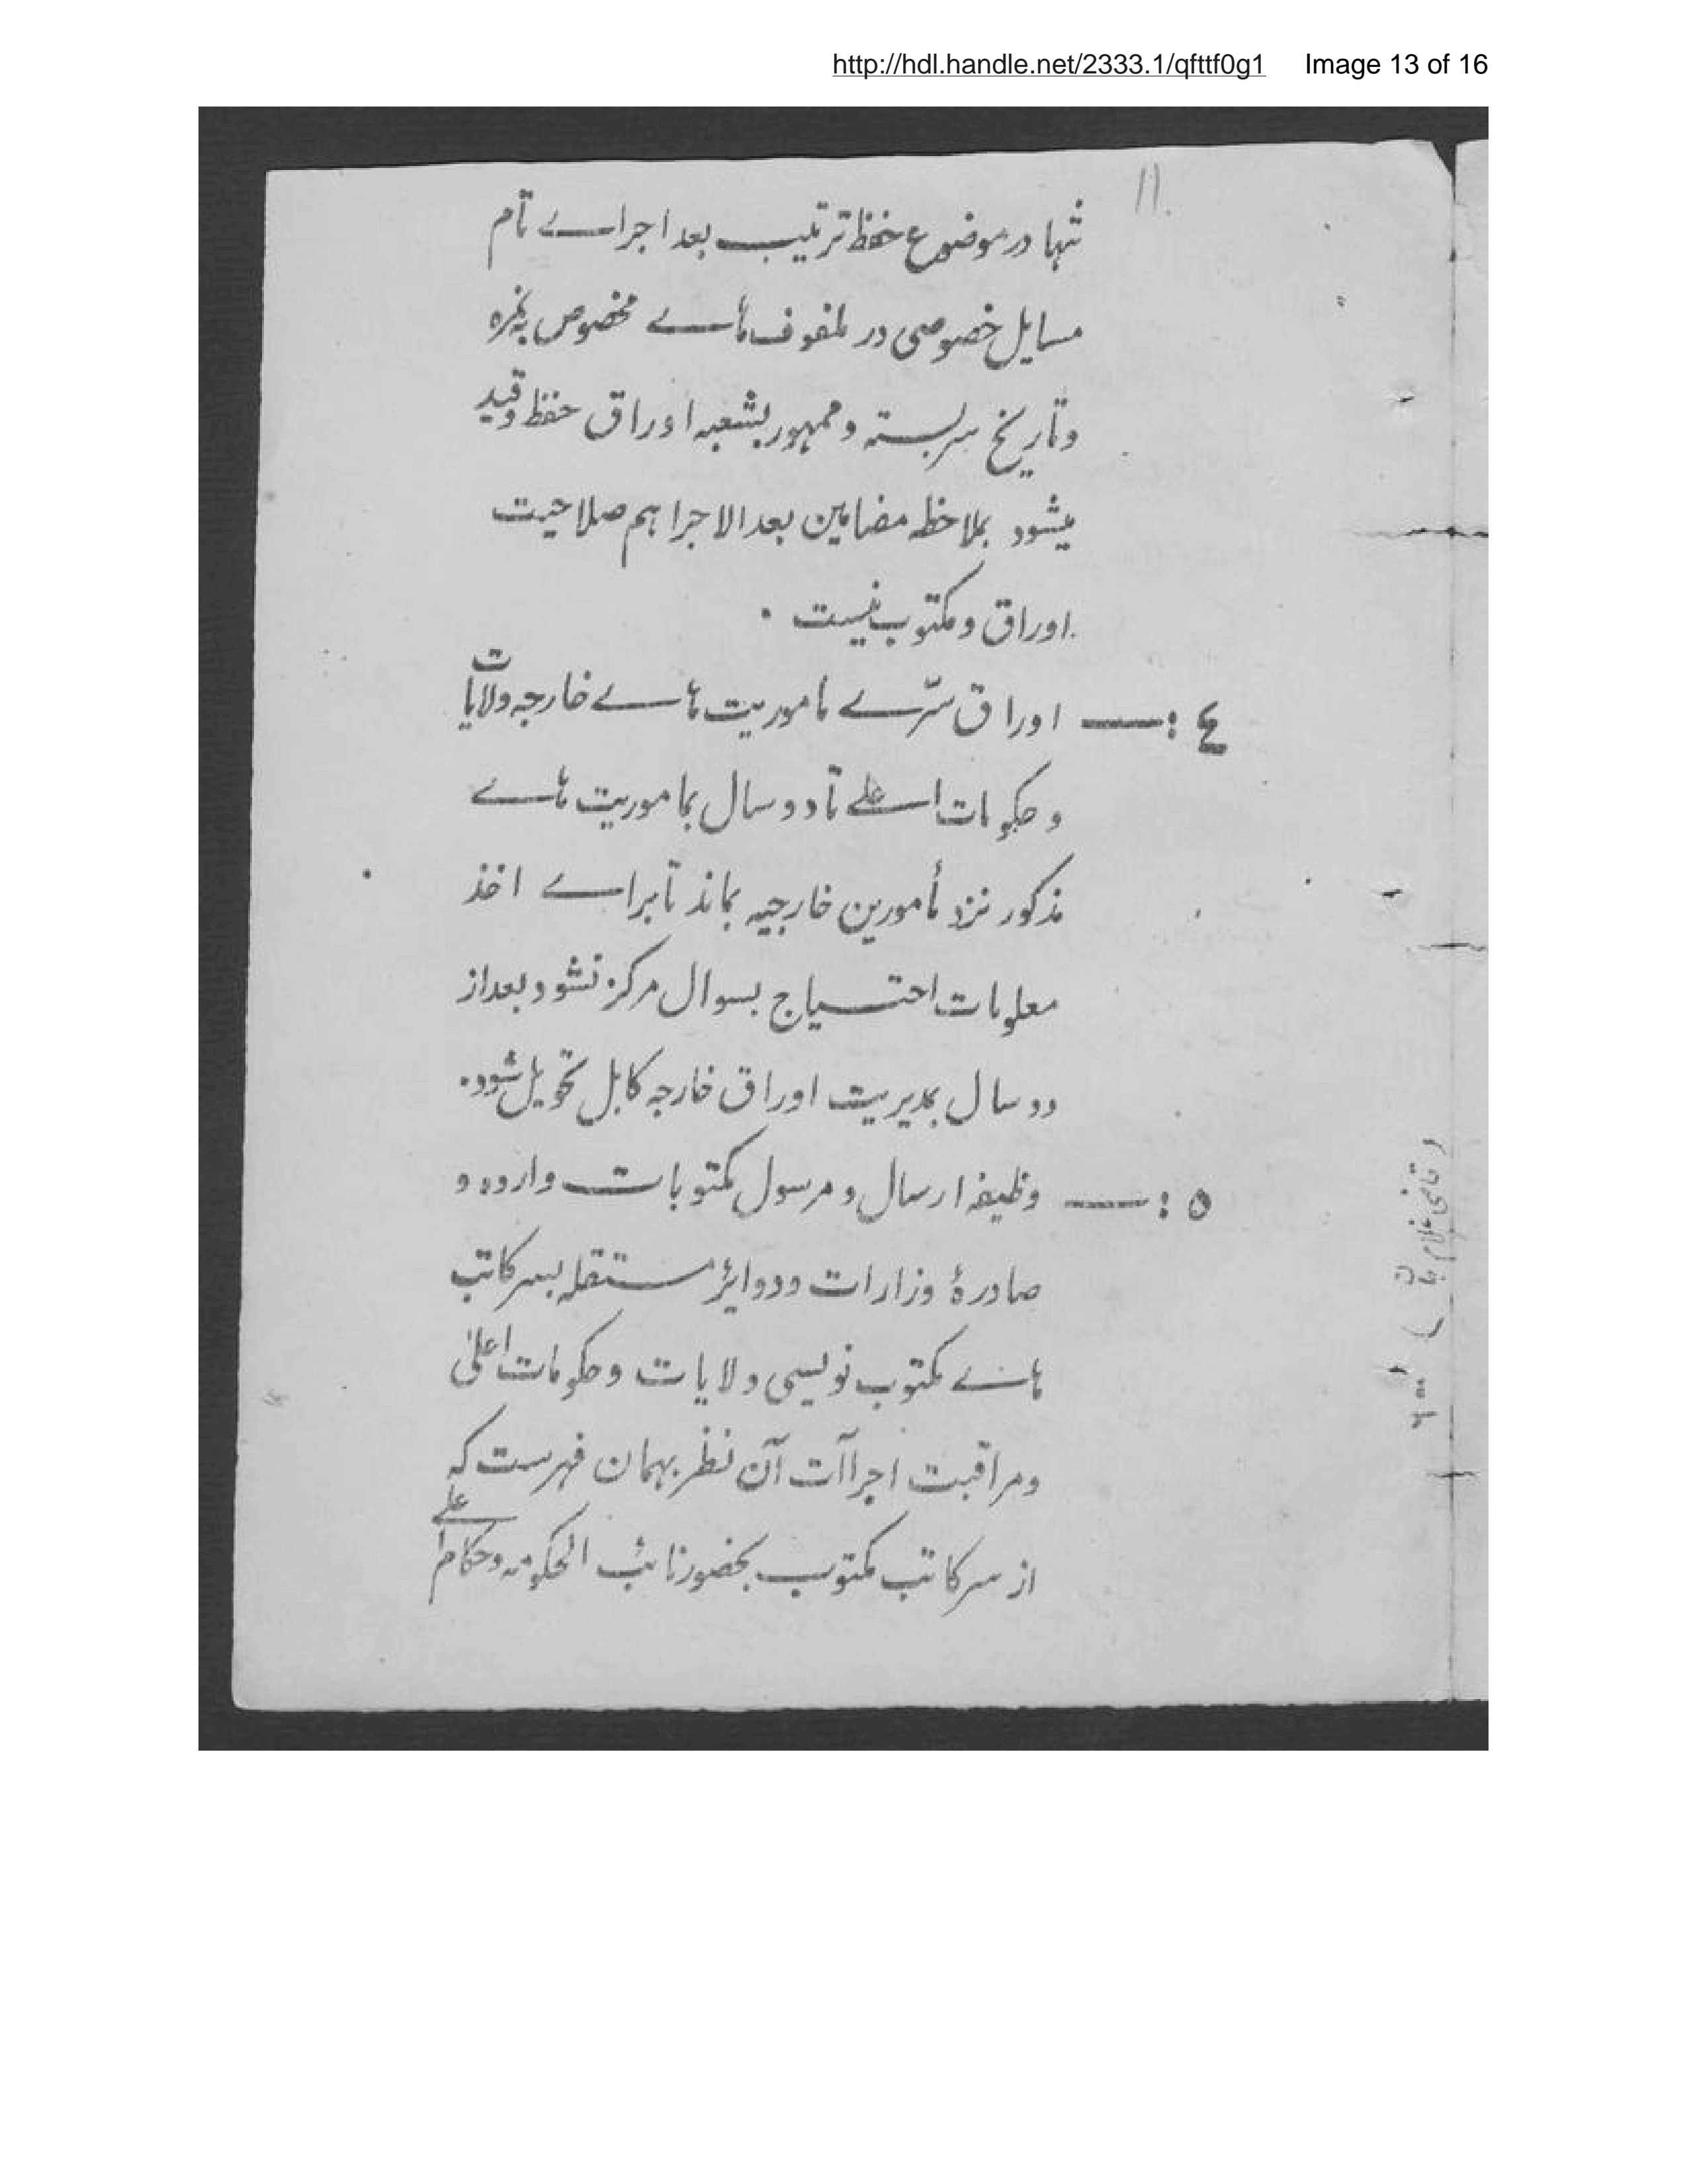 http://hdl.handle.net/2333.1/qfttf0g1 Image 13 of 16
۱۱
تنها در موضوع حفظ ترتیب بعد اجراے تام
مسایل خصوصی در ملفوف هاے مخصوص به نمره
و تاریخ سربسته و ممهور بشعبه اوراق حفظ و قید
میشود بملاحظه مضامین بعد الاجرا هم صلاحیت
اوراق و مکتوب نیست .
۴ :— اوراق سرّے ماموریت هاے خارجه ولایات
و حکومات اعلے تا دو سال بماموریت هاے
مذکور نزد مأمورین خارجیه بماند تا براے اخذ
معلومات احتیاج بسوال مرکز نشود بعد از
دو سال بمدیریت اوراق خارجه کابل تحویل شود.
۵ :— وظیفه ارسال و مرسول مکتوبات وارده و
صادرهٔ وزارات و دوایر مستقله بسرکاتب
هاے مکتوب نویسی ولایات و حکومات اعلیٰ
و مراقبت اجراآت آن نظر بهمان فهرست که
از سرکاتب مکتوب بحضور نائب الحکومه و حکام اعلے